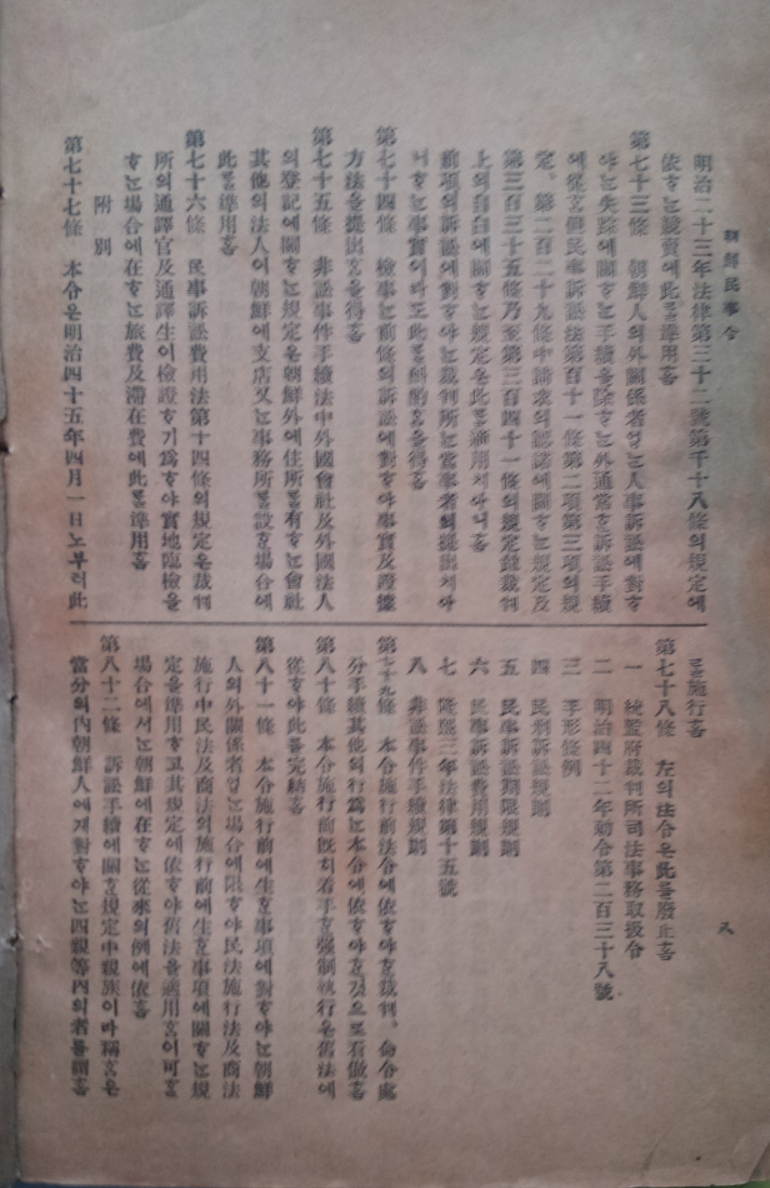 朝鮮民事令
八
明治二十三年法律第三十二號第千十八條의規定에
依ᄒᆞᄂᆞᆫ競賣에此ᄅᆞᆯ準用홈
第七十三條 朝鮮人의外關係者업ᄂᆞᆫ人事訴訟에對ᄒᆞ
야ᄂᆞᆫ失踪에關ᄒᆞᄂᆞᆫ手續을除ᄒᆞᄂᆞᆫ外通常ᄒᆞᆫ訴訟手續
에從홈但民事訴訟法第百十一條第二項第三項의規
定、第二百二十九條中請求의認諾에關ᄒᆞᄂᆞᆫ規定及
第三百三十五條乃至第三百四十一條의規定並裁判
上의自白에關ᄒᆞᄂᆞᆫ規定은此ᄅᆞᆯ適用치아니홈
前項의訴訟에對ᄒᆞ야ᄂᆞᆫ裁判所ᄂᆞᆫ當事者의提出치아
니ᄒᆞᄂᆞᆫ事實이라도此ᄅᆞᆯ斟酌홈을得홈
第七十四條 檢事ᄂᆞᆫ前條의訴訟에對ᄒᆞ야事實及證據
方法을提出홈을得홈
第七十五條 非訟事件手續法中外國會社及外國法人
의登記에關ᄒᆞᄂᆞᆫ規定은朝鮮外에住所ᄅᆞᆯ有ᄒᆞᄂᆞᆫ會社
其他의法人이朝鮮에支店又ᄂᆞᆫ事務所ᄅᆞᆯ設ᄒᆞᆫ場合에
此ᄅᆞᆯ準用홈
第七十六條 民事訴訟費用法第十四條의規定은裁判
所의通譯官及通譯生이檢證ᄒᆞ기爲ᄒᆞ야實地臨檢을
ᄒᆞᄂᆞᆫ場合에在ᄒᆞᄂᆞᆫ旅費及滯在費에此ᄅᆞᆯ準用홈
附 別
第七十七條 本令은明治四十五年四月一日노부러此
ᄅᆞᆯ施行홈
第七十八條 左의法令은此을廢止홈
一 統監府裁判所司法事務取扱令
二 明治四十二年勅令第二百三十八號
三 手形條例
四 民刑訴訟規則
五 民事訴訟期限規則
六 民事訴訟費用規則
七 隆熙三年法律第十五號
八 非訟事件手續規則
第七十九條 本令施行前法令에依ᄒᆞ야ᄒᆞᆫ裁判、命令處
分手續其他의行爲ᄂᆞᆫ本令에依ᄒᆞ야ᄒᆞᆫ것으로看做홈
第八十條 本令施行前旣히着手ᄒᆞᆫ强制執行은舊法에
從ᄒᆞ야此ᄅᆞᆯ完結홈
第八十一條 本令施行前에生ᄒᆞᆫ事項에對ᄒᆞ야ᄂᆞᆫ朝鮮
人의外關係者업ᄂᆞᆫ場合에限ᄒᆞ야民法施行法及商法
施行中民法及商法의施行前에生ᄒᆞᆫ事項에關ᄒᆞᄂᆞᆫ規
定을準用ᄒᆞ고其規定에依ᄒᆞ야舊法을適用홈이可ᄒᆞᆫ
場合에서ᄂᆞᆫ朝鮮에在ᄒᆞᄂᆞᆫ從來의例에依홈
第八十二條 訴訟手續에關ᄒᆞᆫ規定中親族이라稱홈은
當分의內朝鮮人에게對ᄒᆞ야ᄂᆞᆫ四親等內의者를謂홈